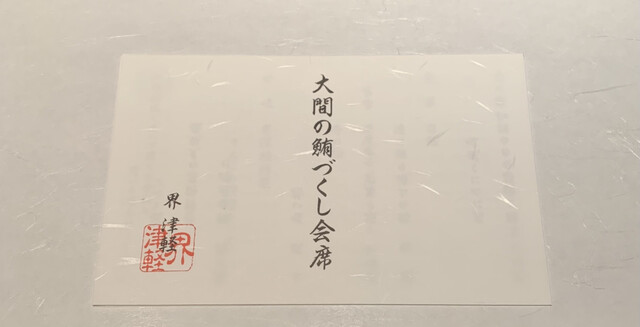 大間の鮪づくし会席
界 津軽
界津軽